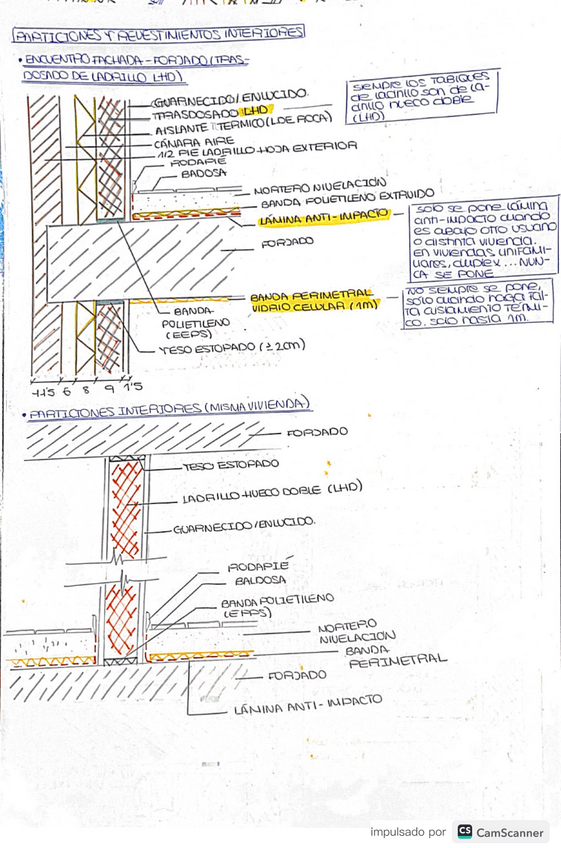 PARTICIONES Y REVESTIMIENTOS INTERIORES
• ENCUENTRO FACHADA - FORJADO (TRAS-
DOSADO DE LADRILLO LHD)
GUARNECIDO/ENLUCIDO.
TRASDOSADO LHD
AISLANTE TERMICO (L.DE ROCA)
CÁMARA AIRE
1/2 PIE LADRILLO HOJA EXTERIOR
RODAPIE
BADOSA
MORTERO NIVELACIÓN
BANDA POLIETILENO EXTRUIDO
LÁMINA ANTI-IMPACTO
FORJADO
BANDA PERIMETRAL
VIDRIO CELULAR (1M)
BANDA
POLIETILENO
(EEPS)
YESO ESTOPADO (≥2cm)
SIEMPRE LOS TABIQUES
DE LADRILLO SON DE LA-
DRILLO HUECO DOBLE
(LHD)
SOLO SE PONE LÁMINA
ANTI-IMPACTO CUANDO
ES ABAJO OTRO USUARIO
O DISTINTA VIVIENDA.
EN VIVIENDAS UNIFAMI-
LIARES, DUPLEX... NUN-
CA SE PONE
NO SIEMPRE SE PONE,
SOLO CUANDO HAGA FAL-
TA AISLAMIENTO TÉRMI-
CO. SOLO HASTA 1M.
11'5 6 8 9 1'5
• PARTICIONES INTERIORES (MISMA VIVIENDA)
FORJADO
YESO ESTOPADO
LADRILLO HUECO DOBLE (LHD)
GUARNECIDO/ENLUCIDO.
RODAPIÉ
BALDOSA
BANDA POLIETILENO
(EEPS)
MORTERO
NIVELACIÓN
BANDA
PERIMETRAL
FORJADO
LÁMINA ANTI-IMPACTO
impulsado por CS CamScanner